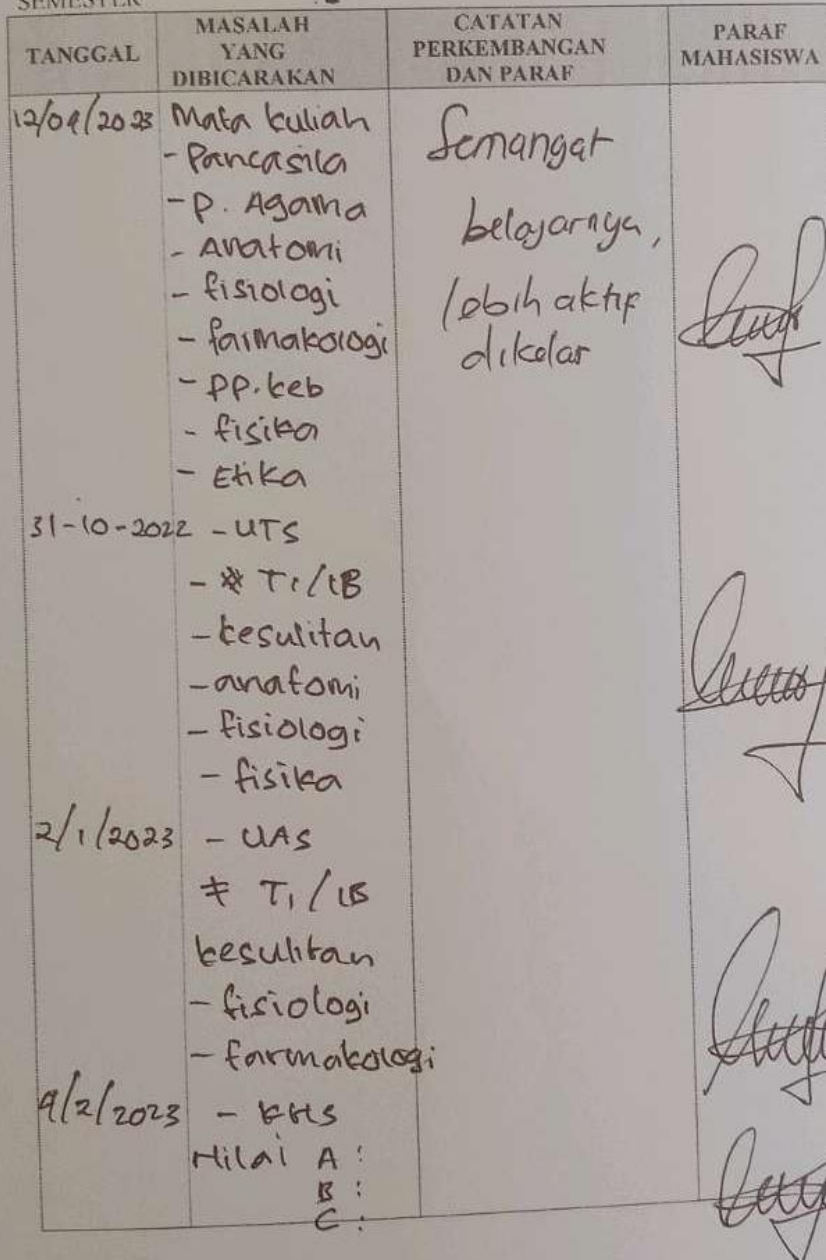 SEMESTER
TANGGAL
MASALAH
YANG
DIBICARAKAN
CATATAN
PERKEMBANGAN
DAN PARAF
PARAF
MAHASISWA
12/09/2023 Mata kuliah
- Pancasila
- P. Agama
- Anatomi
- fisiologi
- farmakologi
- pp. keb
- fisika
- Etika
Semangat
belajarnya,
lebih aktif
dikelar
31-10-2022 - UTS
- * T1/1B
- kesulitan
- anatomi
- fisiologi
- fisika
2/1/2023 - UAS
≠ T1/1B
kesulitan
- fisiologi
- farmakologi
9/2/2023 - KHS
Nilai A :
B :
C :